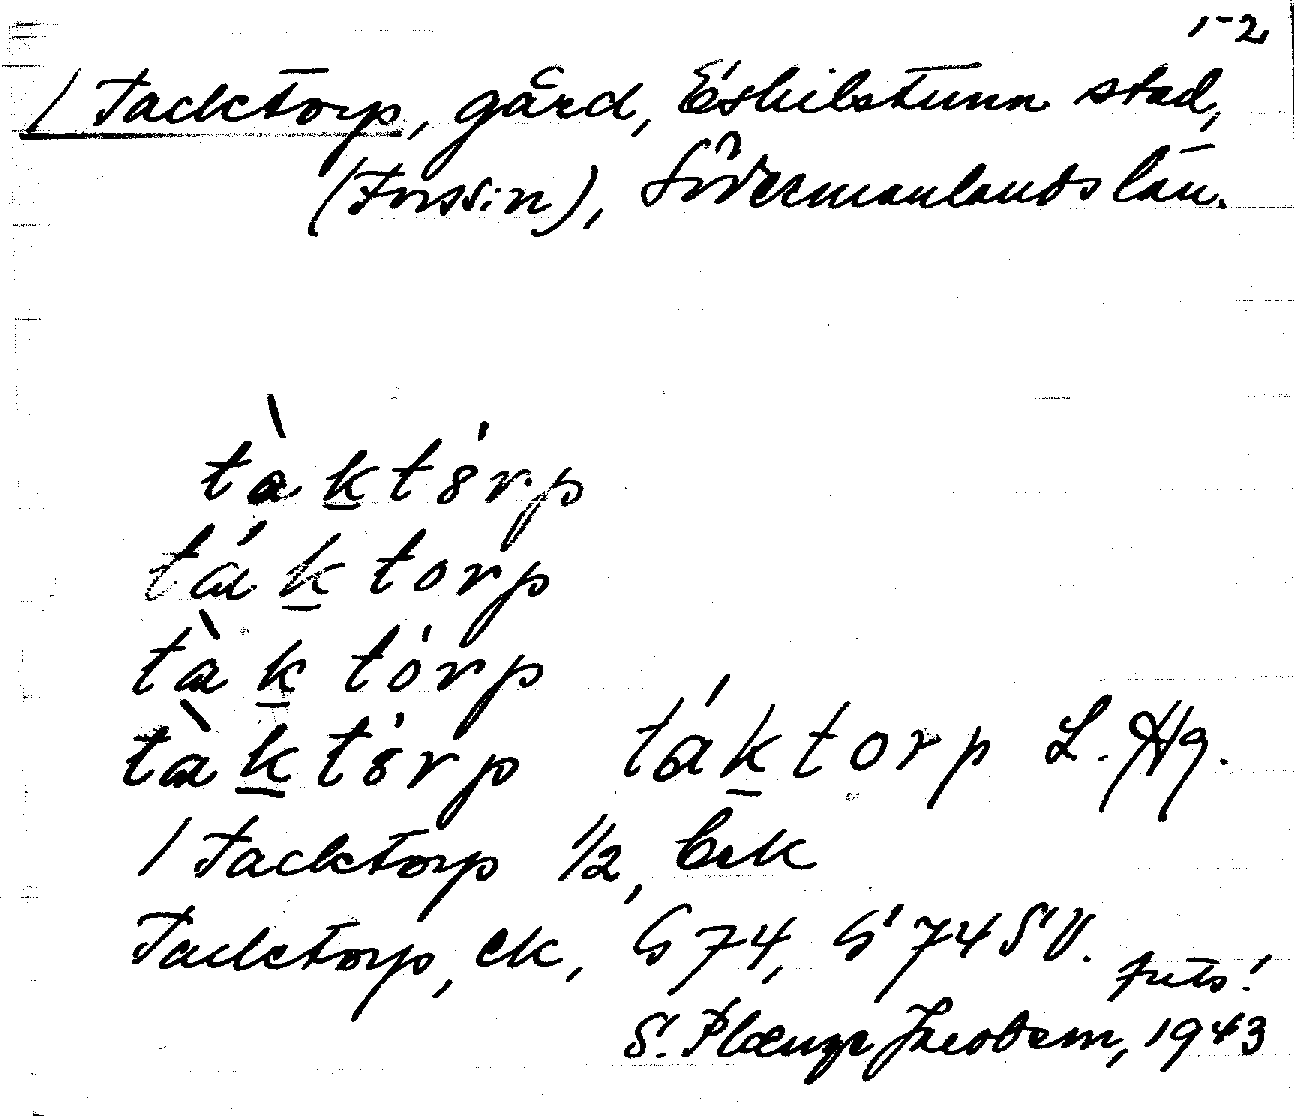 1-2
/ Tacktorp, gård, Eskilstuna stad,
(Fors s:n), Södermanlands län.
tàktórp
táktorp
tàktórp
tàktórp táktorp L. Hg.
/ Tacktorp 1/2, bek
Tacktorp, ek, G 74, G 74 SV.
S. Jacobson, 1943